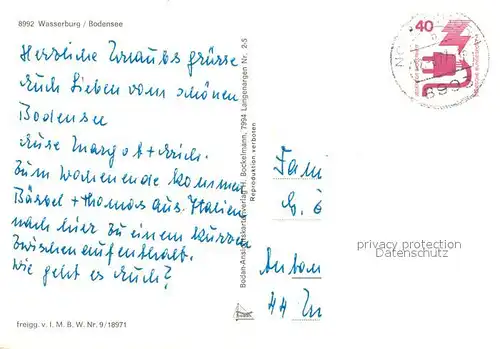 8992 Wasserburg / Bodensee
Herzliche Urlaubsgrüsse
Euch Lieben vom schönen
Bodensee
Eure Margot + Erich.
Zum Wochenende kommen
Bärbel + Thomas aus Italien
nach hier zu einem kurzen
Zwischenaufenthalt.
Wie geht es Euch?
freigg. v. I. M. B. W. Nr. 9/18971
Bodan-Ansichtskartenverlag H. Bockelmann, 7994 Langenargen Nr. 2-5
Reproduktion verboten
40
Fam
privacy protection
Datenschutz
44